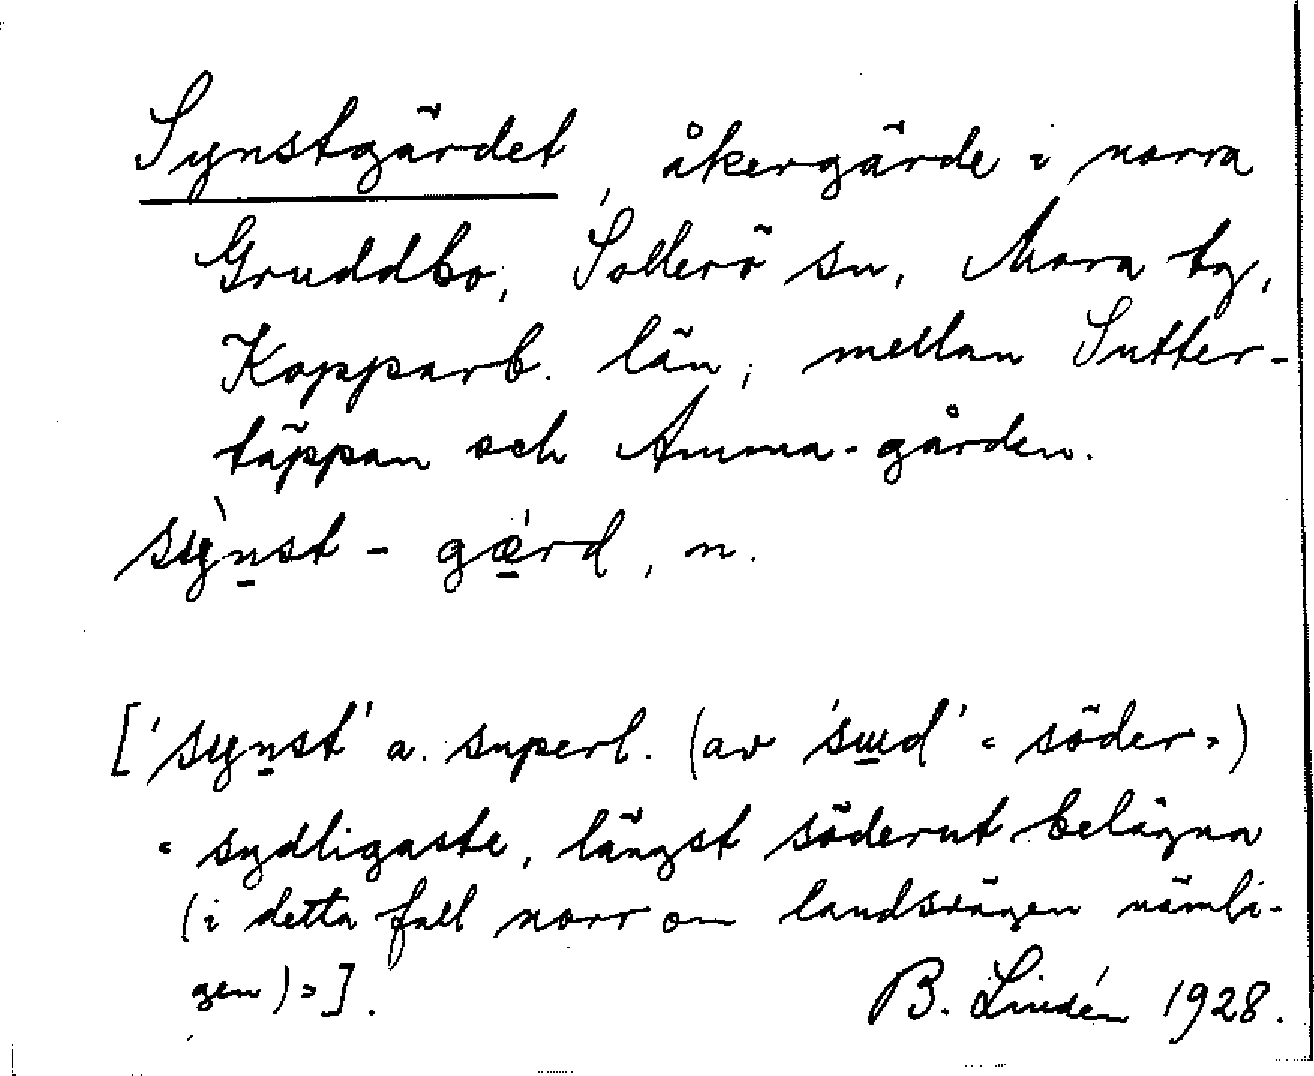 Synstgärdet, åkergärde i norra
Gruddbo, Sollerö sn, Mora tg,
Kopparb. län, mellan Sutter-
täppan och Amma-gården.
sỳn̲st - gǽ̲rd, n.
['syn̲st' a. superl. (av 'sɯ̲d' «söder»)
«sydligaste, längst söderut belägna
(i detta fall norr om landsvägen nämli-
gen)»].
B. Lindén 1928.